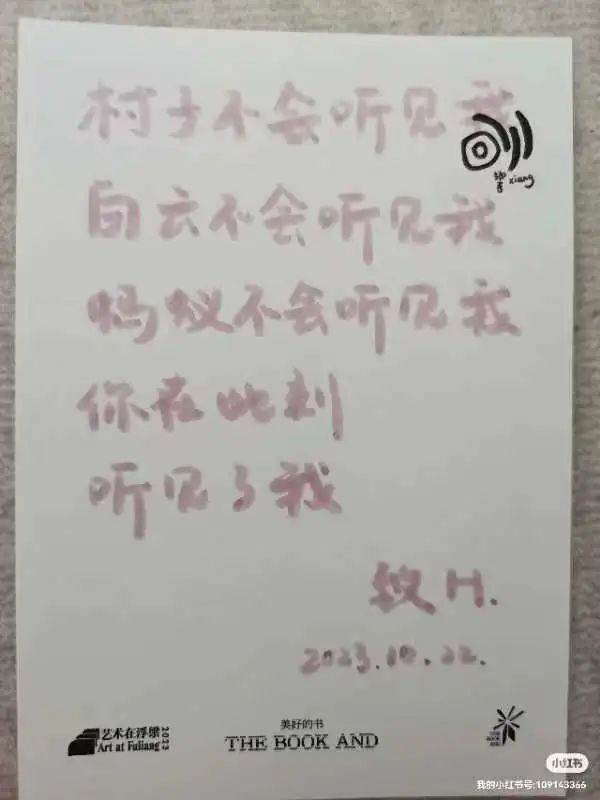 村子不会听见我
响 xiang
白云不会听见我
蚂蚁不会听见我
你在此刻
听见了我
H.
2023.10.22.
艺术在浮梁 2023
Art at Fuliang
美好的书
THE BOOK AND
THE BOOK AND
小红书
我的小红书号:109143366